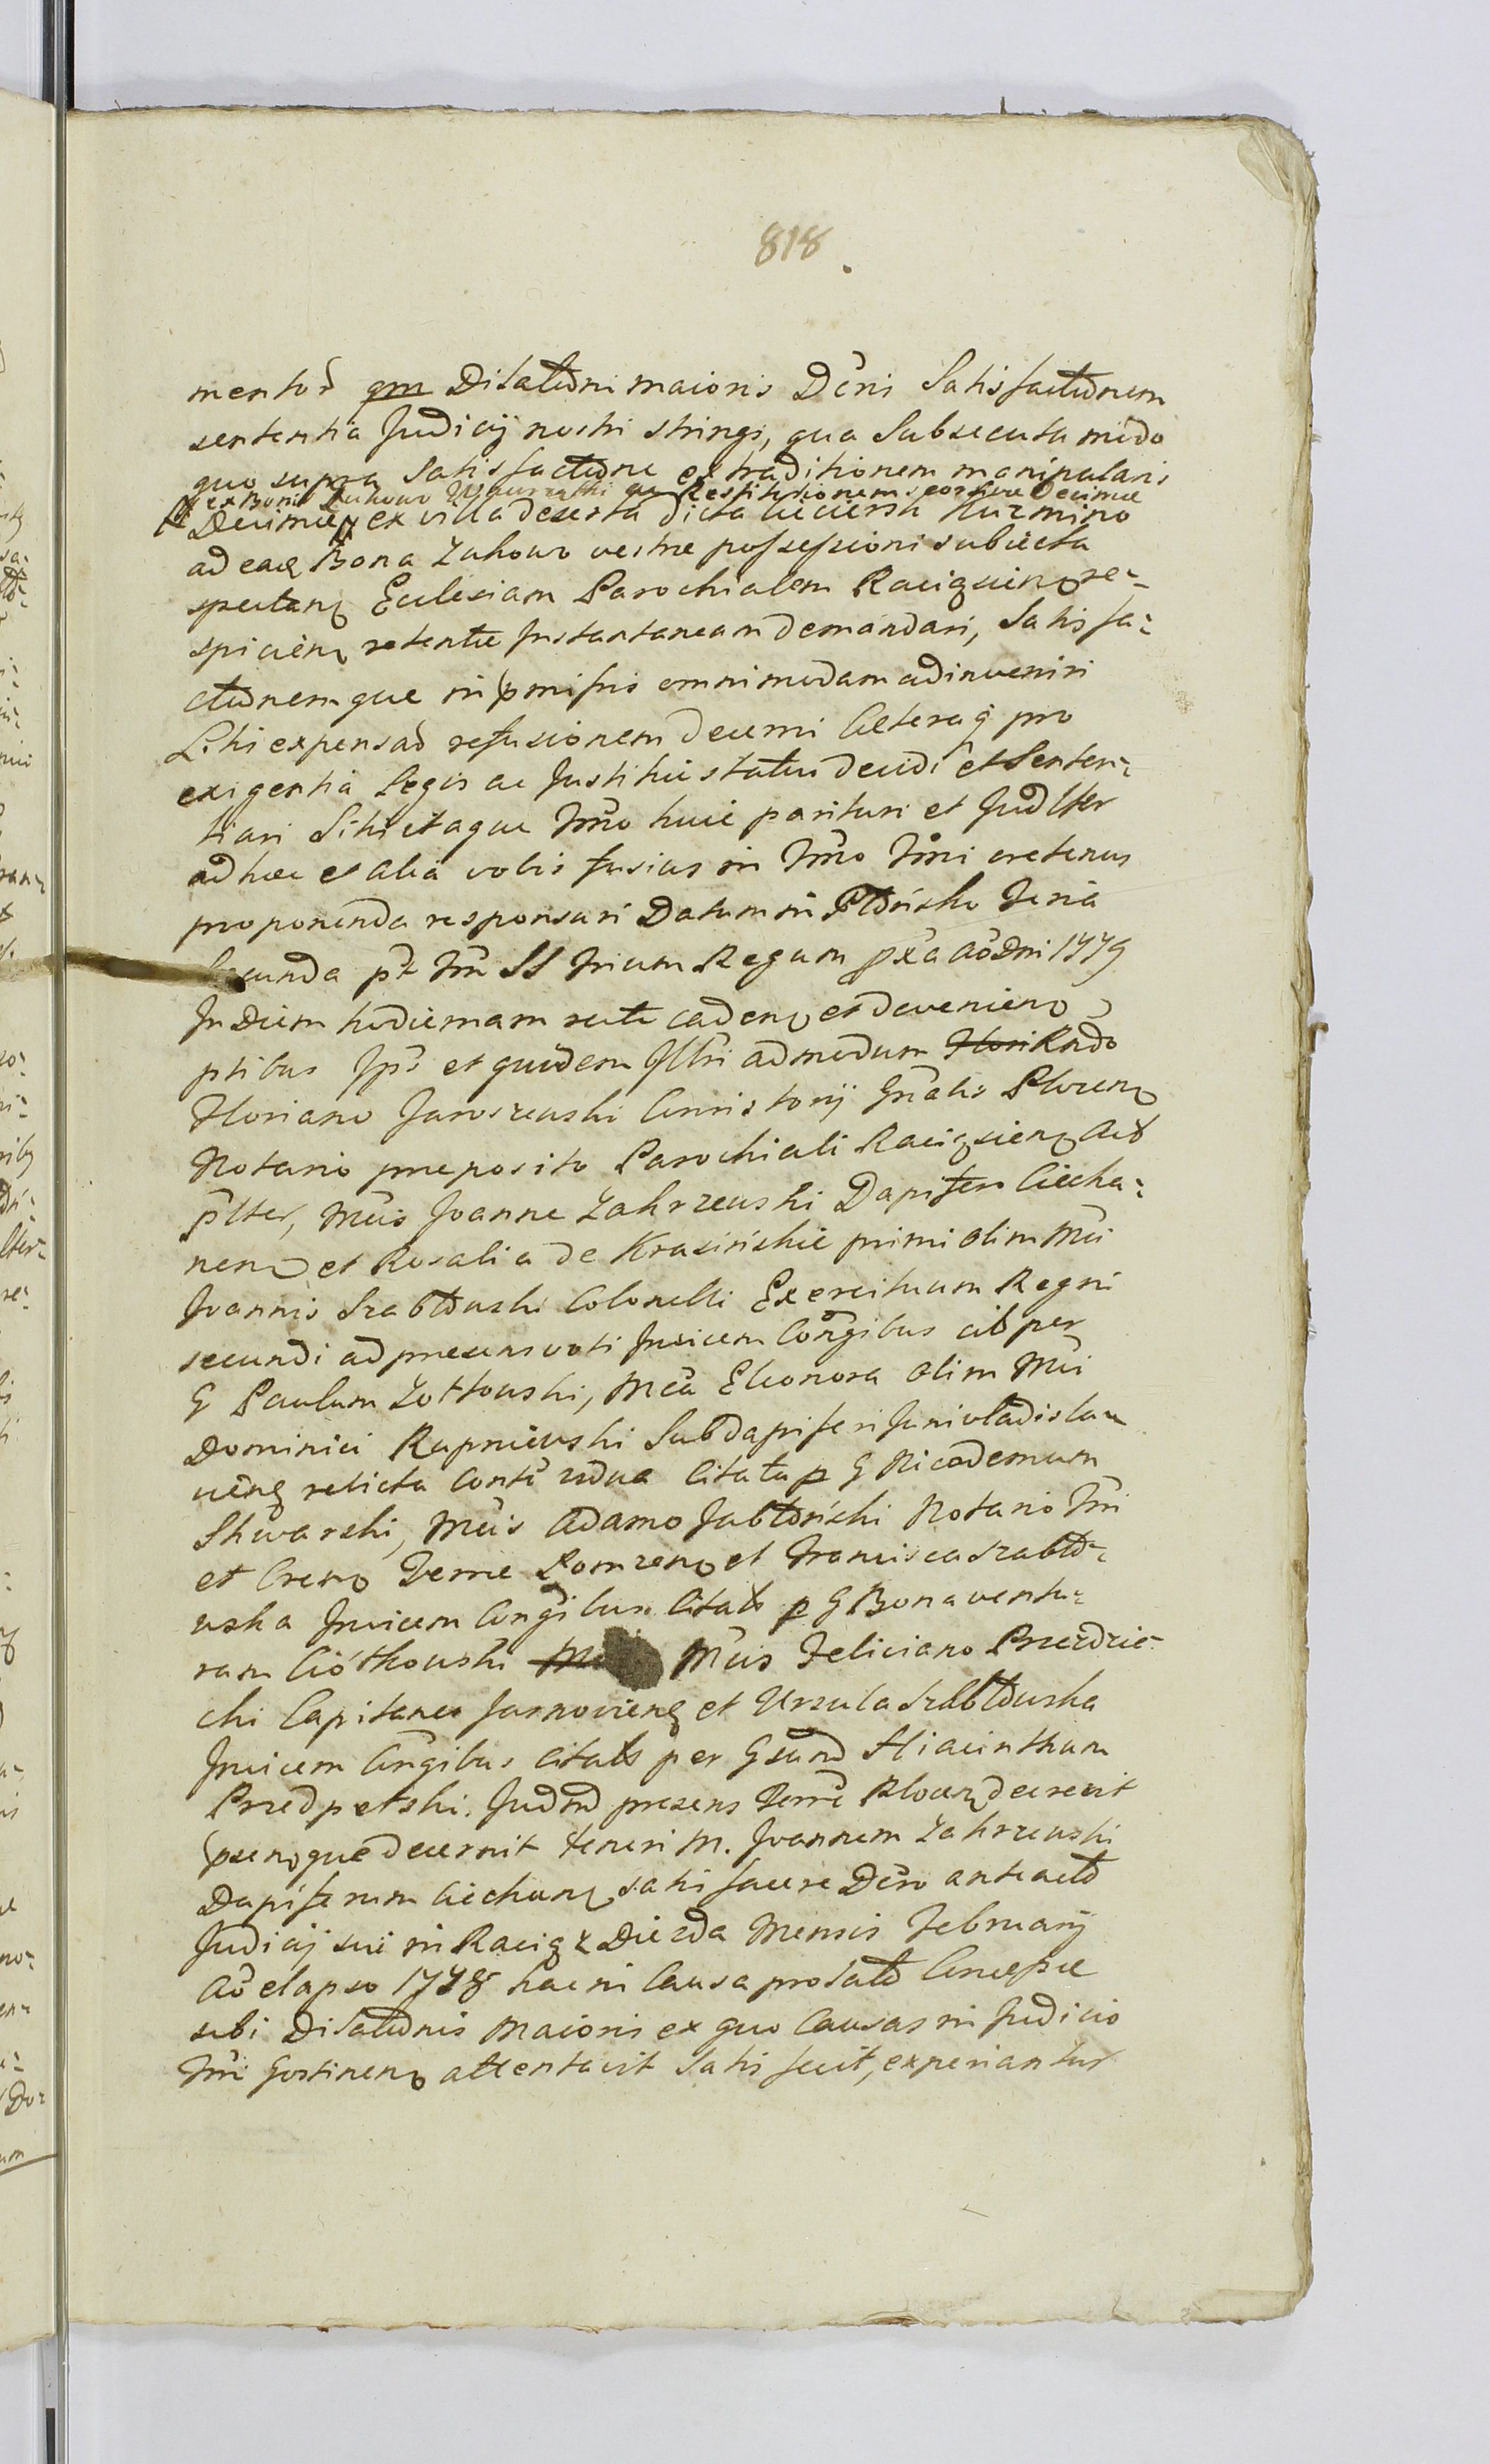 818.
mentor̃ qm Dilatõni maioris Dc̃ri Satisfactõnem
sententia Judicij nostri stringi, qua Subsecuta modo
quo supra Satisfactõne extraditionem manipularis
ex Bonis Zukowo Restitutionem Decimæ
Decimæ ex villa deserta dicta Kuzmino
ad eaq Bona Zukowo vestræ possessioni subiecta
spectanꝫ Ecclesiam Parochialem Raciązienꝫ re-
spicienꝫ retentæ Instantaneam demandari, Satisfa-
ctõnemque in p̃missis omnimodam adinveniri
Litis expensaꝝ refusionem decerni Cæteraq̃ pro
exigentia Legis ac Justitiæ statui decidi et Senten-
tiari Sitis itaque Tm̃o huic parituri et Judlter
ad hæc et alia vobis fusius in Tm̃o Tm̃i oretenus
proponenda responsuri Datum in Płońsko Feria
Secunda pt̃ Tm̃ SS Trium Regum px̃a Aõ Dni 1779
In Diem hodiernam recte cadenꝫ et devenienꝫ
ptibus Ips̃ et quidem Illr̃i admodum Flori Rndo
Floriano Jaroszewski Consistorij Gn̄alis Plocenꝫ
Notario præposito Parochiali Raciązienꝫ Act
p̃lter, Mc̃is Joanne Zakrzewski Dapifero Ciecha-
nenꝫ et Rosalia de Krasińskie primi olim Mc̃i
Joannis Szabłowski Colonelli Exercituum Regni
secundi ad præsens voti Invicem Con̄gibus cit per
G Paulum Zołtowski, Mc̃a Eleonora olim Mc̃i
Dominici Rupniewski Subdapiferi Juniwladislau
vienꝫ relicta Cont̃ vidua Citata p G Nicodemum
Skwarski, Mc̃is Adamo Jabłoński Notario Tm̃i
et Crenꝫ Terræ Łomzenꝫ et Francisca Szabło-
wska Invicem Con̄gibus Citat̃ p G Bonaventu-
ram Ciółkowski Mc̃is Feliciano Przezdzie-
cki Capitaneo Jasnovienꝫ et Urzula Szabłowska
Invicem Con̄gibus Citat̃ per Gsund Hiacinthum
Przedpełski. Judm̃ præsens Terr̃e Plocenꝫ decrevit
p̃senꝫque decernit teneri M. Joannem Zakrzewski
Dapiferum Ciechanꝫ satisfacere Dc̃ro anteacto
Judicij sui in Raciąz Die 2da Mensis Februarij
Aõ elapso 1778 hac in Causa prolato Concessæ
sibi Dilatõnis Maioris ex quo Causas in Judicio
Tm̃i Gostinenꝫ attentavit Satisfecit, experiantur